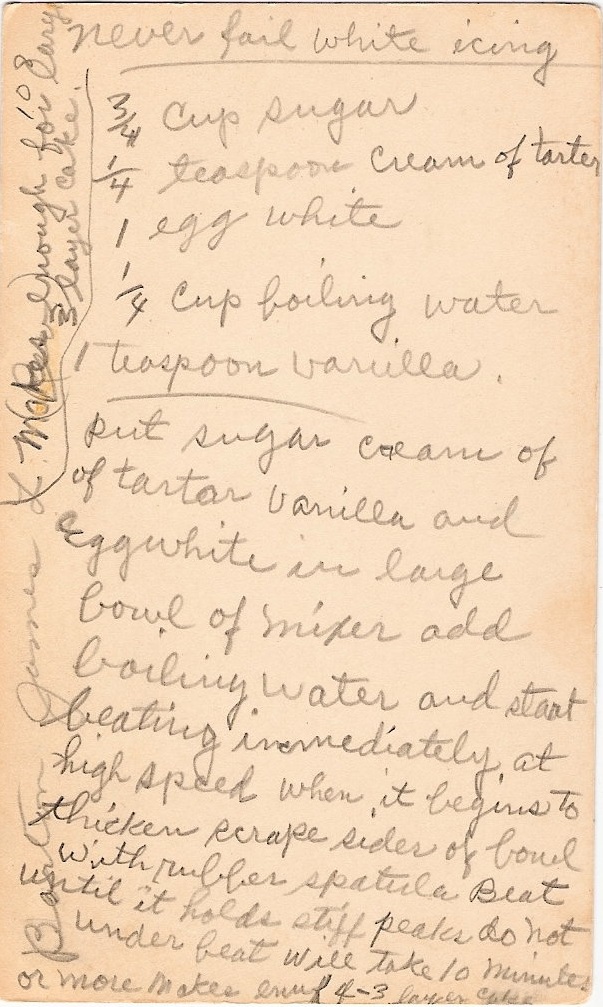 never fail white icing
3/4 cup sugar
1/4 teaspoon cream of tarter
1 egg white
1/4 cup boiling water
1 teaspoon vanilla.
put sugar cream of
of tartar vanilla and
eggwhite in large
bowl of mixer add
boiling water and start
beating immediately at
high speed when it begins to
thicken scrape sides of bowl
with rubber spatula Beat
until it holds stiff peaks do not
under beat will take 10 minutes
or more Makes enuf 4-3 layer cake
Makes enough for 10
3 layer cake.
James L.